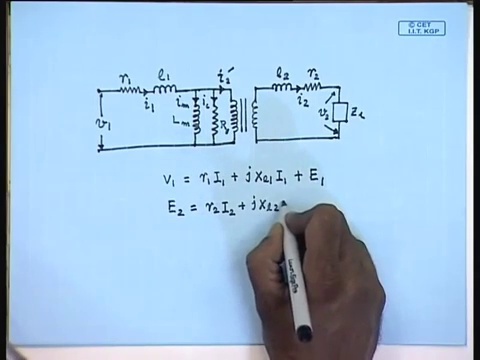 © CET
I.I.T. KGP
r₁ l₁ i₂′ l₂ r₂
i₁ iₘ i_c i₂
v₁ Lₘ v₂ Z_L
V₁ = r₁I₁ + jXₗ₁I₁ + E₁
E₂ = r₂I₂ + jXₗ₂